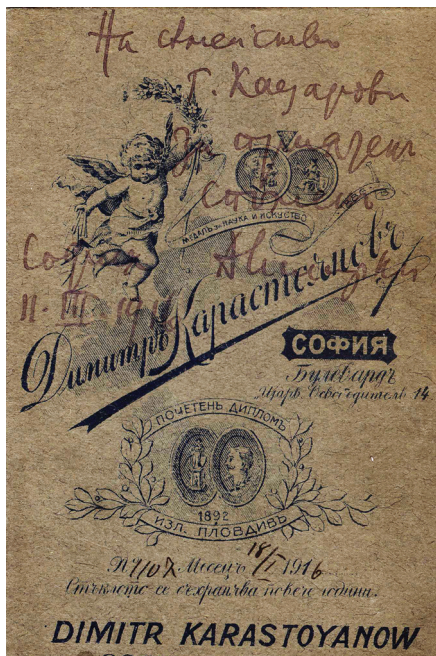 На семейство
Г. Кацарови
За
спомен
София
11-III-1916
МЕДАЛЪ ЗА НАУКА И ИСКУСТВО
Димитръ Карастояновъ
СОФИЯ
Булевардъ
Царъ Освободителъ 14.
ПОЧЕТЕНЬ ДИПЛОМЪ
1892
ИЗЛ. ПЛОВДИВЪ
№ 1107 Месецъ 18/I 1916
Стъклото се съхранъва повече години.
DIMITR KARASTOYANOW